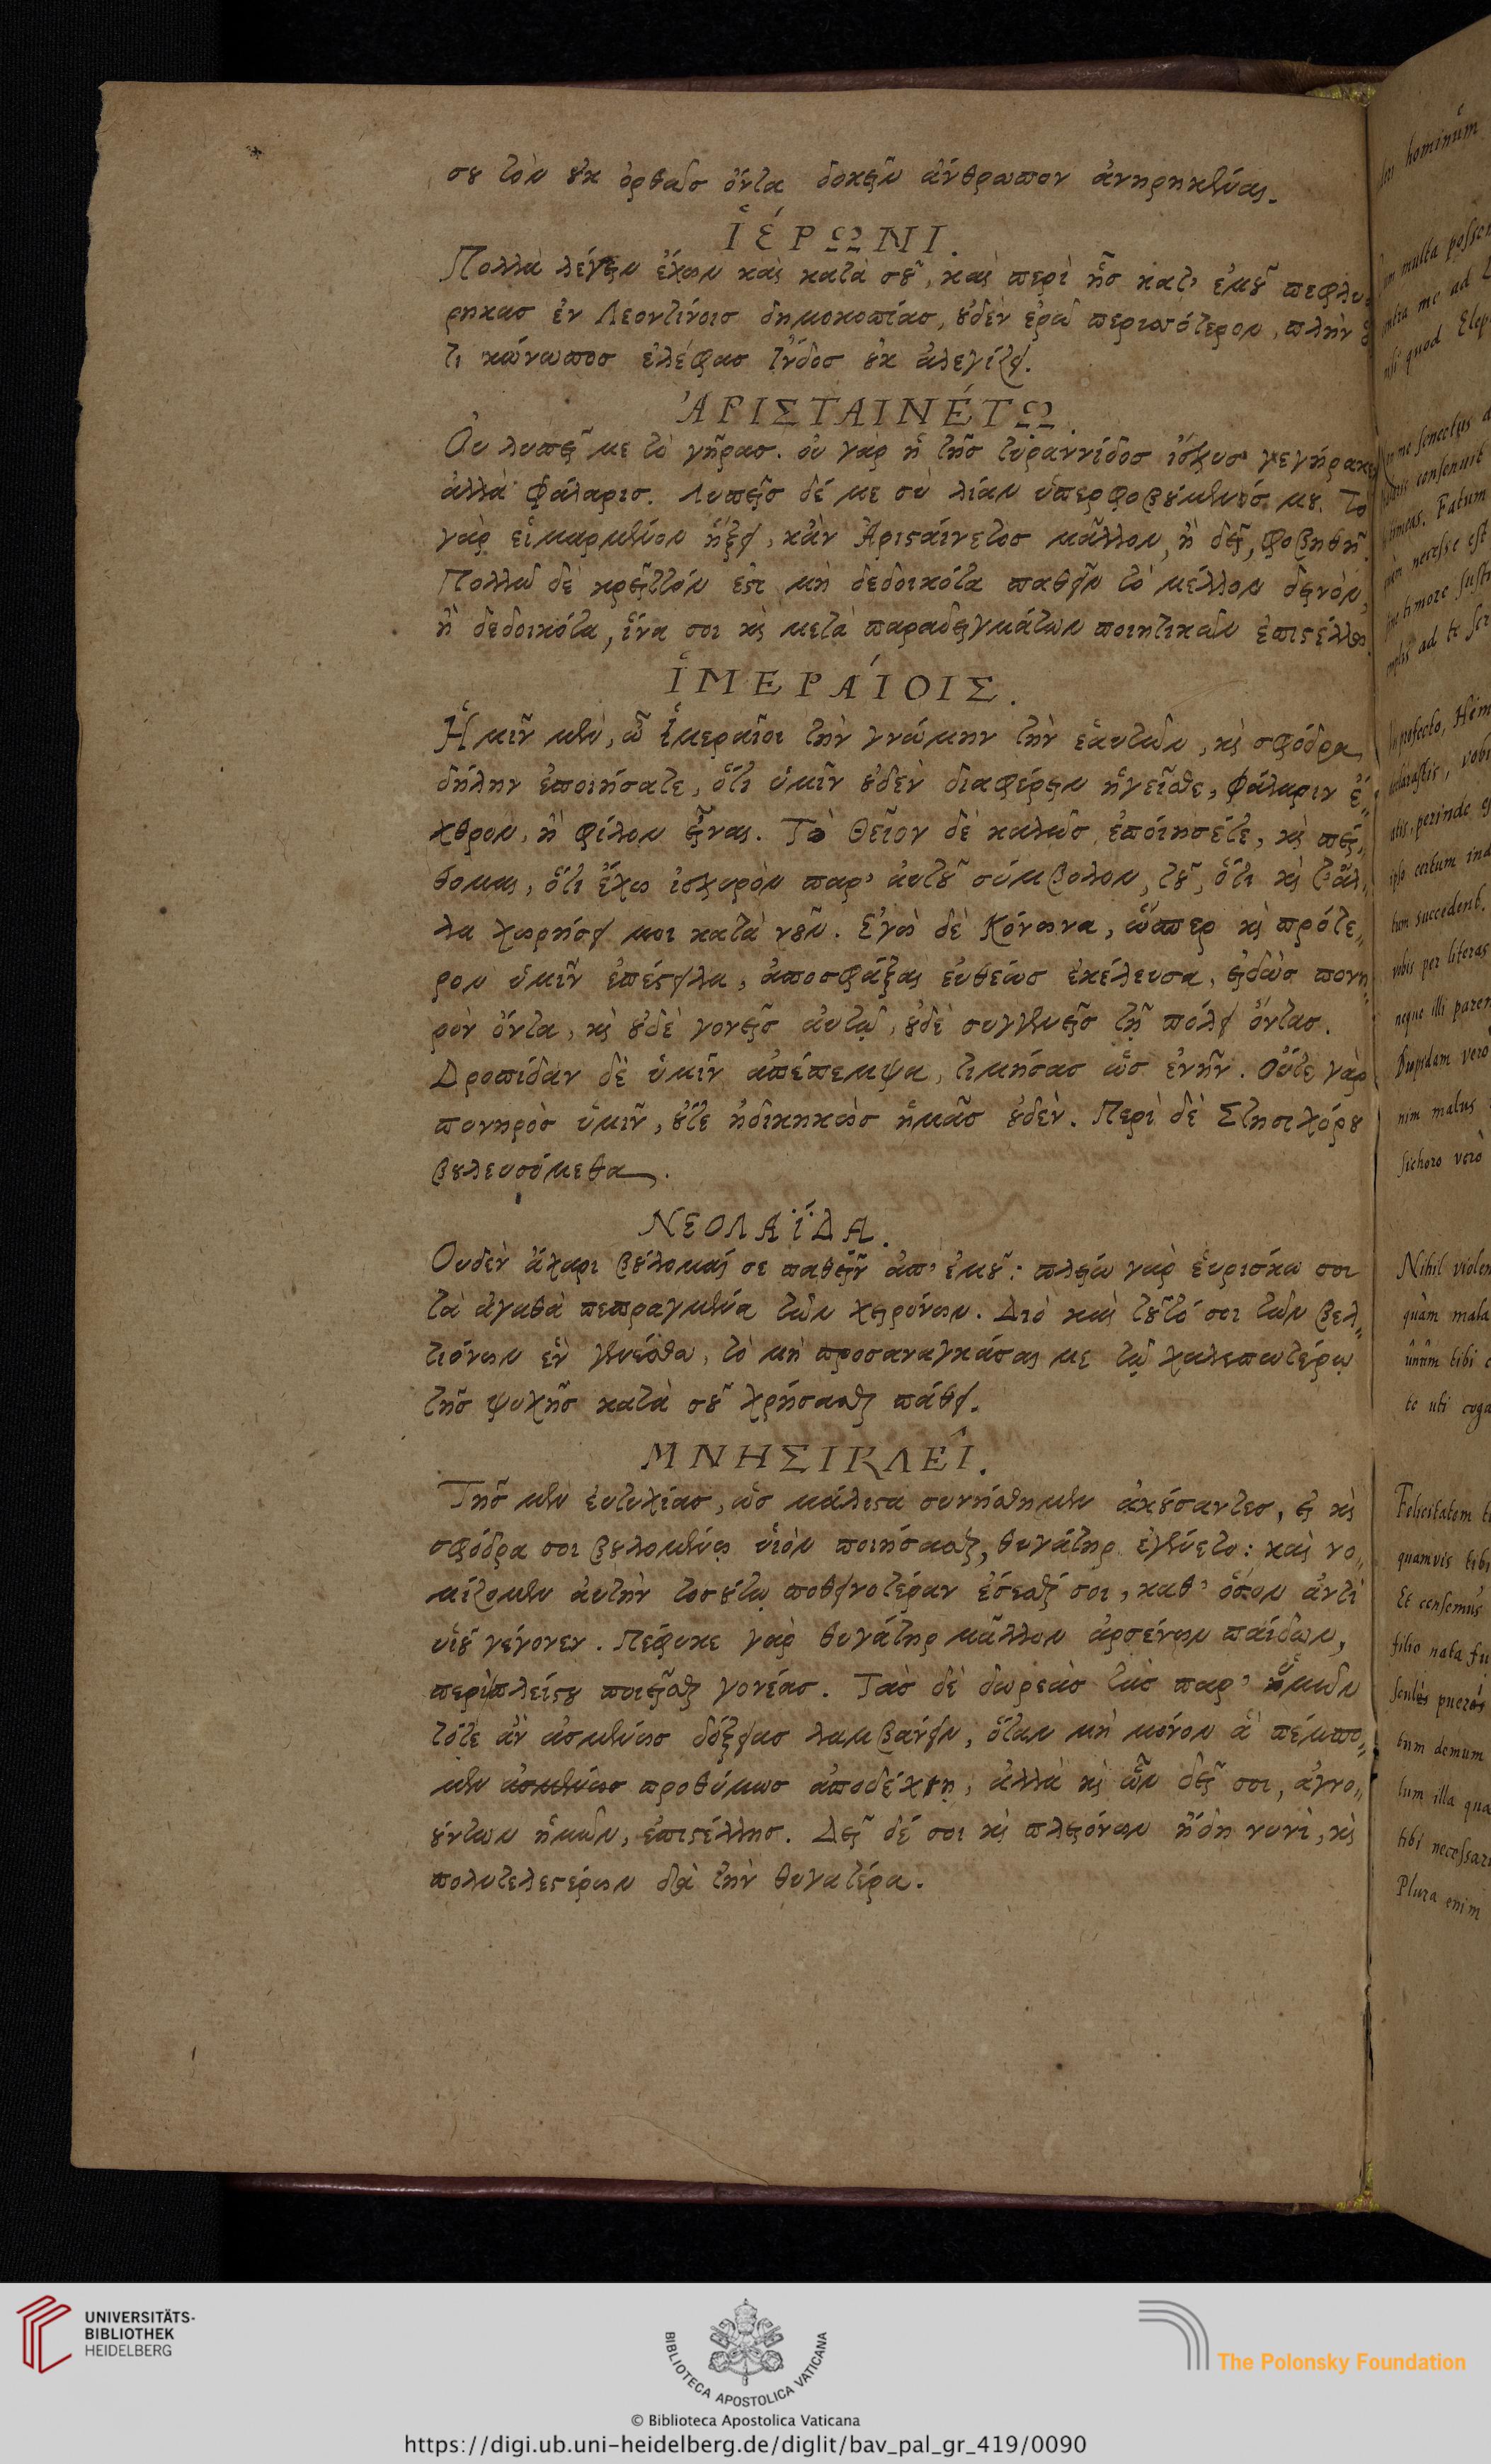 σου τὸν οὐκ ὀρθῶς ὄντα δοκεῖν ἄνθρωπον ἀνῃρηκέναι.
ἹΈΡΩΝΙ.
Πολλὰ λέγειν ἔχων καὶ κατὰ σοῦ, καὶ περὶ ἧς κατ' ἐμοῦ πεφλυ-
ρηκας ἐν Λεοντίνοις δημοκοπίας, οὐδὲν ἐρῶ περισσότερον, πλὴν ὅ
τι κώνωπος ἐλέφας Ἰνδὸς οὐκ ἀλεγίζει.
ἈΡΙΣΤΑΙΝΈΤΩ.
Οὐ λυπεῖ με τὸ γῆρας. οὐ γὰρ ἡ τῆς τυραννίδος ἰσχὺς γεγήρακεν
ἀλλὰ Φάλαρις. Λυπεῖς δέ με σὺ λίαν ὑπερφοβούμενός μου. Τὸ
γὰρ εἱμαρμένον ἥξει, κἂν Ἀρισταίνετος μᾶλλον, ἢ δεῖ, φοβηθῇ.
Πολλῷ δὲ κρεῖττόν ἐστι μὴ δεδοικότα παθεῖν τὸ μέλλον δεινὸν,
ἢ δεδοικότα, ἵνα σοι καὶ μετὰ παραδειγμάτων ποιητικῶν ἐπιστέλλω.
ἹΜΕΡΑΊΟΙΣ.
Ἡμῖν μὲν, ὦ Ἱμεραῖοι τὴν γνώμην τὴν ἑαυτῶν, καὶ σφόδρα
δήλην ἐποιήσατε, ὅτι ὑμῖν οὐδὲν διαφέρειν ἡγεῖσθε, Φάλαριν ἐ„
χθρον, ἢ φίλον εἶναι. Τὸ θεῖον δὲ καλῶς ἐποίησέτε, καὶ πεί„
θομαι, ὅτι ἔχω ἰσχυρὸν παρ' ἀυτοῦ σύμβολον, τοῦ, ὅτι καὶ τἄλ„
λα χωρήσει μοι κατὰ νοῦν. Ἐγὼ δὲ Κόνωνα, ὥσπερ καὶ πρότε„
ρον ὑμῖν ἐπέστειλα, ἀποσφάξαι ἐυθέως ἐκέλευσα, εἰδὼς πονη„
ρὸν ὄντα, καὶ οὐδὲ γονεῖς ἀυτῷ, οὐδὲ συγγενεῖς τῇ πόλει ὄντας.
Δροπίδαν δὲ ὑμῖν ἀπέπεμψα, τιμήσας ὡς ἐνῆν. Οὔτε γὰρ
πονηρὸς ὑμῖν, οὔτε ἠδικηκὼς ἡμᾶς οὐδέν. Περὶ δὲ Στησιχόρου
βουλευσόμεθα.
ΝΕΟΛΑΪ́ΔΑ.
Ουδὲν ἄχαρι βούλομαί σε παθεῖν ἀπ' ἐμοῦ: πλείω γὰρ ἑυρίσκω σοι
τὰ ἀγαθὰ πεπραγμένα τῶν χειρόνων. Διὸ καὶ τοῦτό σοι τῶν βελ„
τιόνων ἓν γενέσθω, τὸ μὴ προσαναγκάσαι με τῷ χαλεπωτέρῳ
τῆς ψυχῆς κατὰ σοῦ χρήσασθαι πάθει.
ΜΝΗΣΙΚΛΕΪ͂.
Τῆς μὲν ἐυτυχίας, ὡς μάλιστα συνήσθημεν ἀκούσαντες, εἰ καὶ
σφόδρα σοι βουλομένῳ ὑιὸν ποιήσασθαι, θυγάτηρ ἐγένετο: καὶ νο„
μίζομεν ἀυτὴν τοσούτῳ ποθεινοτέραν ἔσεσθαί σοι, καθ' ὅσον ἀντὶ
ὑιοῦ γέγονεν. Πέφυκε γὰρ θυγάτηρ μᾶλλον ἀρσένων παίδων,
περὶ πλείστου ποιεῖσθαι γονέας. Τὰς δὲ δωρεὰς τὰς παρ' ἡμῶν
τότε ἂν ἀσμένως δόξειας λαμβάνειν, ὅταν μὴ μόνον ἃ πέμπο„
μεν ἀσμένως προθύμως ἀποδέχῃ, ἀλλὰ καὶ ὧν δεῖ σοι, ἀγνο„
ούντων ἡμῶν, ἐπιστέλλῃς. Δεῖ δέ σοι καὶ πλειόνων ἤδη νυνὶ, καὶ
πολυτελεστέρων διὰ τὴν θυγατέρα.
hominum
multa possem
me ad
quod Elep
me senectus
consenuit
timeas. Fatum
necesse est
timore
ad te
vobis
perinde
certum
tum succedent.
vobis per literas
neque illi paren
Dropidam vero
nim malus
sichoro vero
Nihil violen
quàm mala
unum tibi
te uti coga
Felicitatem
quamvis tibi
Et censemus
filio nata fu
pueros
tum demum
tum illa qua
tibi necessari
Plura enim
UNIVERSITÄTS-
BIBLIOTHEK
HEIDELBERG
BIBLIOTECA APOSTOLICA VATICANA
The Polonsky Foundation
© Biblioteca Apostolica Vaticana
https://digi.ub.uni-heidelberg.de/diglit/bav_pal_gr_419/0090